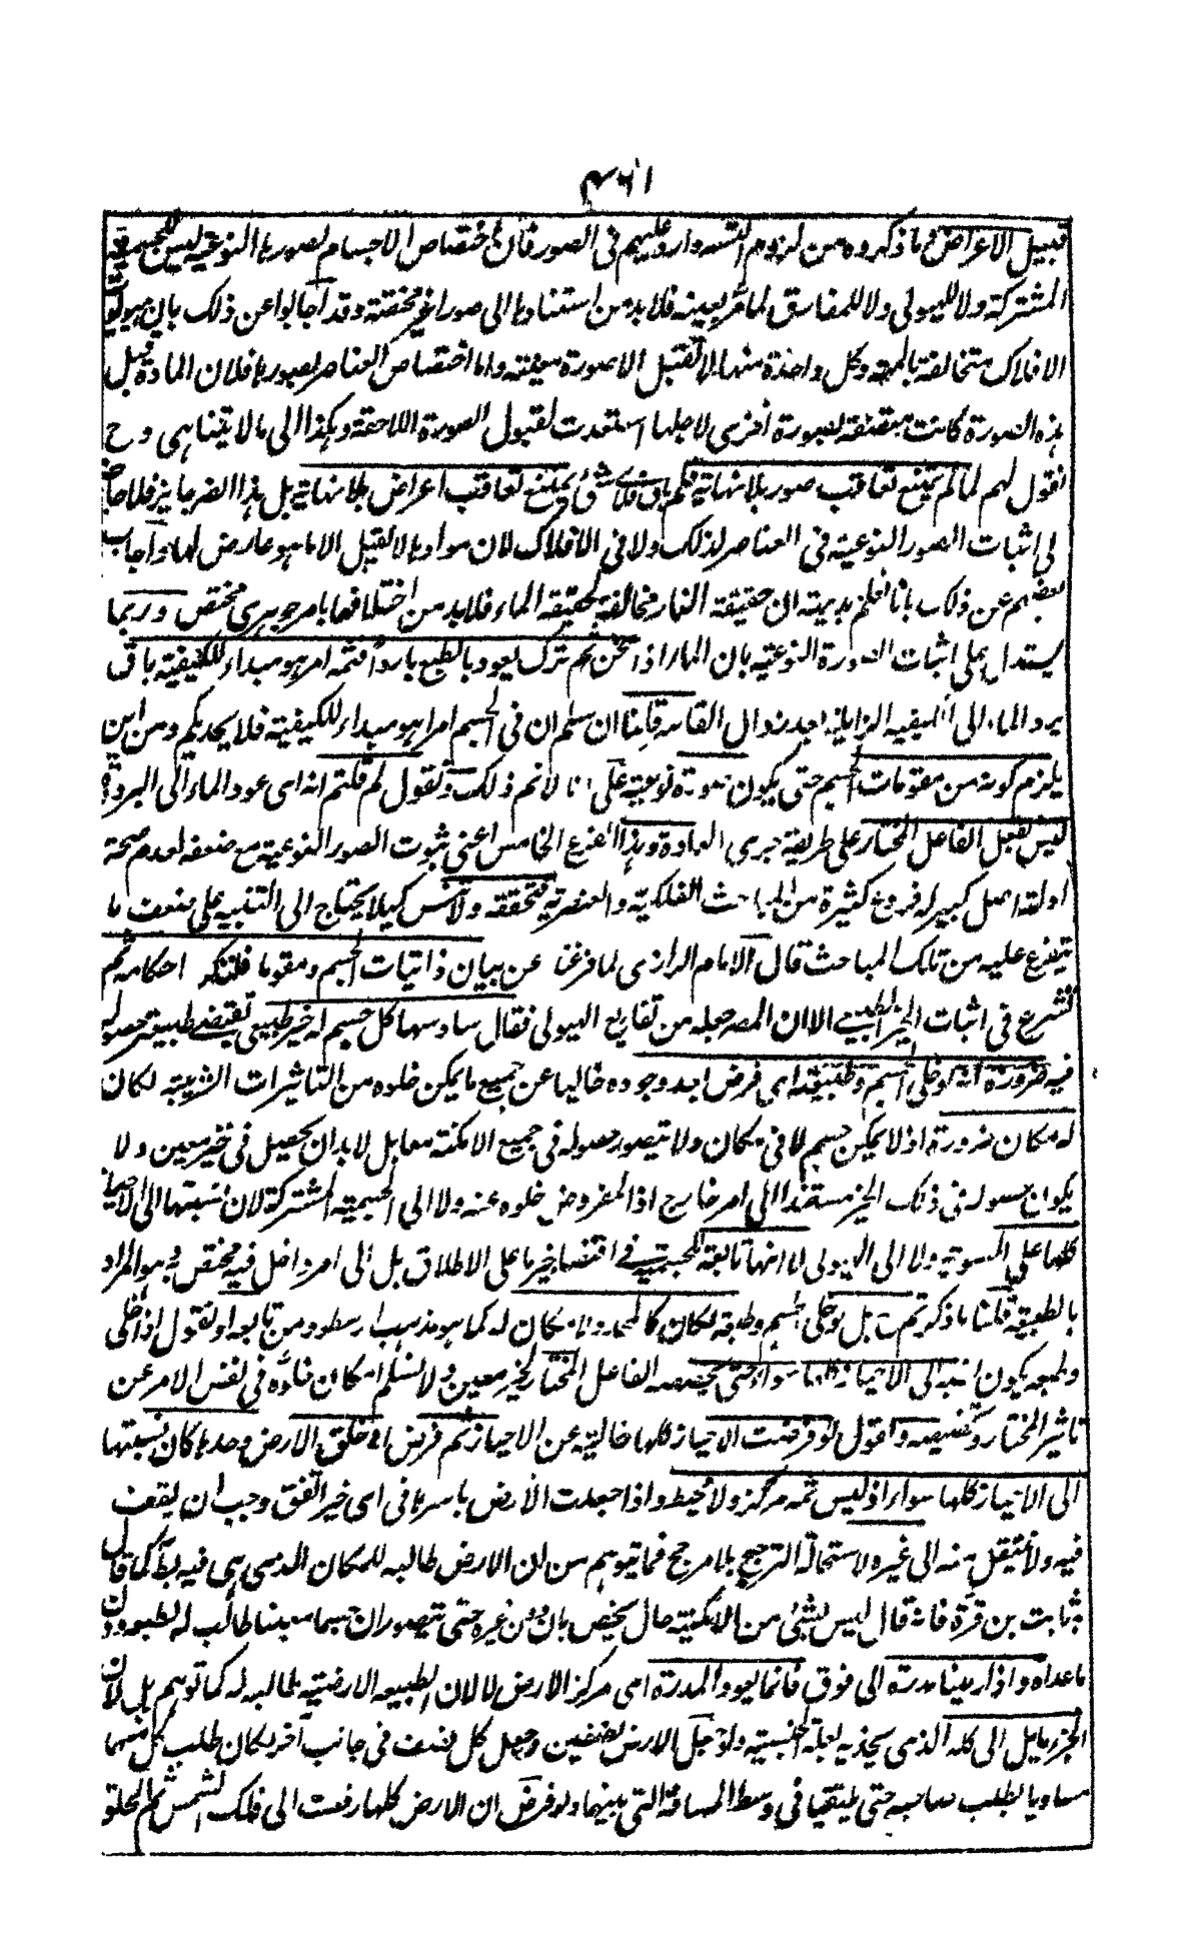 ٤٦١
قبيل الاعراض وما ذكروه من لزوم التسـ وارد عليهم فى الصور فان اختصاص الاجسام بصورها النوعية ليس للجسمية
المشتركة ولا للهيولى ولا للمفارق لما مر بعينه فلا بد من استنادها الى صور اخر مختصة وقد اجابوا عن ذلك بان هيولى
الافلاك متخالفة بالمهية وكل واحدة منها لا تقبل الا صورة معينة واما اختصاص العناصر بصورها فلان المادة قبل
هذه الصورة كانت متصفة بصورة اخرى لاجلها استعدت لقبول الصورة اللاحقة وهكذا الى ما لا يتناهى وح
نقول لهم لما لم يمتنع تعاقب صور بلا نهاية فلم باى شئ يمتنع تعاقب اعراض بلا نهاية بل هذا الضرب جايز فلا حاجة
الى اثبات الصور النوعية فى العناصر لذلك ولا فى الافلاك لان موادها لا تقبل الا ما هو عارض لها واجاب
بعضهم عن ذلك بانا نعلم بديهة ان حقيقة النار مخالفة لحقيقة الماء فلا بد من اختلافهما بامر جوهرى مختص وربما
يستدل على اثبات الصورة النوعية بان الماء اذا سخن ثم ترك يعود بالطبع باردا فثمه امر هو مبداء للكيفية باق
يرد الماء الى الكيفية الزايلة بعد زوال القاسر قلنا ان سلم ان فى الجسم امرا هو مبداء للكيفية فلا يجديكم ومن اين
يلزم كونه من مقومات الجسم حتى يكون صورة نوعية على انا لا نم ذلك ونقول لم قلتم انه اى عود الماء الى البرودة
ليس بفعل الفاعل المختار على طريقة جرى العادة وهذا الفرع الخامس اعنى ثبوت الصور النوعية مع ضعفه لعدم صحة
ادلته اصل كبير له فروع كثيرة من المباحث الفلكية والعنصرية فتحققه ولا تنس كيلا يحتاج الى التنبيه على ضعف ما
يتفرع عليه من تلك المباحث قال الامام الرازى لما فرغنا عن بيان ذاتيات الجسم ومقوما فلنذكر احكامه ثم
نشرع فى اثبات الحيز الطبيعى الا ان المصـ جعله من تفاريع الهيولى فقال سادسها كل جسم له حيز طبيعى تقتضى طبيعته حصوله
فيه ضرورة انه لو خلى الجسم وطبيعته اى فرض بعد وجوده خاليا عن جميع ما يمكن خلوه من التاثيرات الغريبة لكان
له مكان ضرورة اذ لا يمكن جسم لا فى مكان ولا يتصور حصوله فى جميع الامكنة معا بل لا بد ان يحصل فى حيز معين ولا
يكون حصوله فى ذلك الحيز مستندا الى امر خارج اذ المفروض خلوه عنه ولا الى الجسمية المشتركة لان نسبتها الى الاحياز
كلها على السوية ولا الى الهيولى لانها تابعة للجسمية فى اقتضاء حيز ما على الاطلاق بل الى امر داخل فيه مختص به هو المراد
بالطبيعة قلنا ما ذكرتم بل لو خلى الجسم وطبعه لكان كالمحدد لا مكان له كما هو مذهب ارسطو ومن تابعه او نقول اذا خلى
وطبعه يكون نسبته الى الاحياز كلها سواء حتى يخصصه الفاعل المختار بحيز معين ولا نسلم امكان خلوه فى نفس الامر عن
تاثير المختار وتخصيصه واقول لو فرضت الاحياز كلها خالية عن الاحياز ثم فرض انه خلق الارض وحدها كان نسبتها
الى الاحياز كلها سواء اذ ليس ثمه مركز ولا محيط واذا جعلت الارض باسرها فى اى حيز اتفق وجب ان يقف
فيه ولا ينتقل منه الى غيره لاستحالة الترجيح بلا مرجح فما يتوهم من ان الارض طالبة للمكان الذى هى فيه بط كما قال
ثابت بن قرة فانه قال ليس لشئ من الامكنة حال يخص بان دون غيره حتى يتصور ان جسما معينا طالب له بطبعه دون
ما عداه واذا رمينا مدرة الى فوق فانما يعود المدرة اى مركز الارض لا لان الطبيعة الارضية طالبة له كما توهم بل لان
الجزء مايل الى كله الذى يجذبه لعلة الجنسية ولو جعل الارض نصفين وجعل كل نصف فى جانب آخر لكان طلب كل منهما
مساويا لطلب صاحبه حتى يلتقيا فى وسط المسافة التى بينهما ولو فرض ان الارض كلها رفعت الى فلك الشمس ثم اطلق